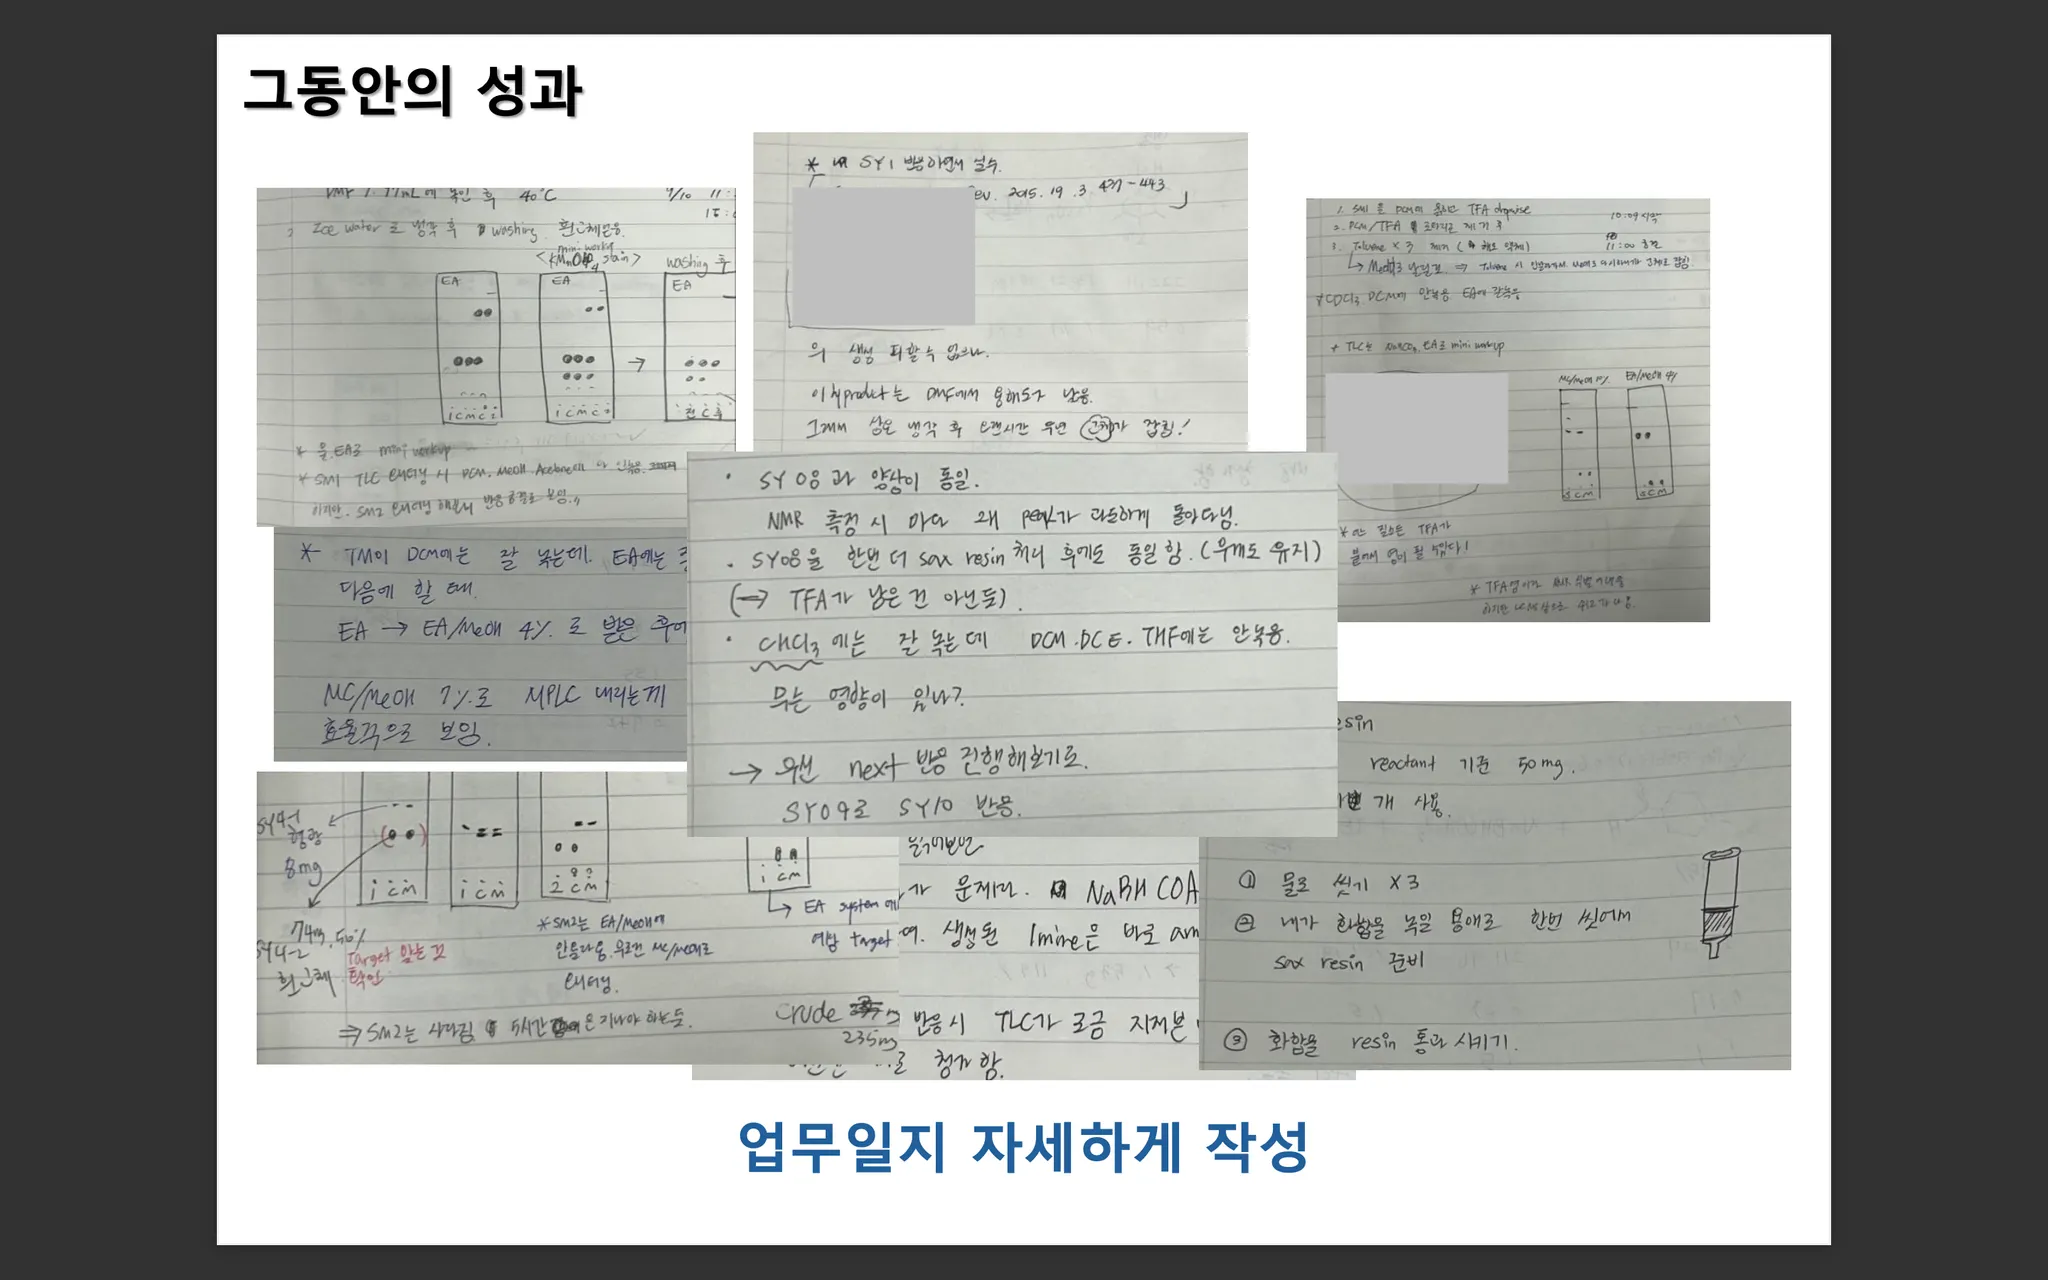 그동안의 성과
DMF 1. 77mL에 녹인 후 40°C
9/10 11:
Ice water로 냉각 후 washing. 흰고체 얻음.
mini workup
<KMnO4 stain>
washing 후
EA
EA
EA
i c m c 2
i c m c 2
* 물.EA로 mini workup
* SM1 TLC 안녹음.
하지만. SM2
* SY1 반응하면서 실수.
ev. 2015. 19. 3 437-443
의 생성 피할수 없으나.
이 byproduct는 DMF에서 용해도가 낮음.
그래서 상온 냉각 후 오랜시간 두면 고체가 잡힘!
1. SM1을 DCM에 녹이고 TFA dropwise
10:09 시작
2. DCM/TFA 로 제거 후
11:00 종료
3. Toluene x 3 제거
* CDCl3. DCM에 안녹음 EA에 잘녹음
* TLC는 NaHCO3. EA로 mini workup
MC/MeOH
EA/MeOH 4%
s c m
s c m
TFA가
붙어서 염이 될 수있다!
* TM이 DCM에는 잘 녹는데. EA에는
다음에 할 때.
EA → EA/MeOH 4%로 받은 후에
MC/MeOH 7%로 MPLC 내리는게
효율적으로 보임.
· SY08과 양상이 동일.
NMR 측정 시 마다 왜 peak가 돌아다님.
· SY08을 한번 더 sax resin 처리 후에도 동일 함. (무게도 유지)
(→ TFA가 남은 건 아닌듯).
· CHCl3에는 잘 녹는데 DCM.DCE.THF에는 안녹음.
무슨 영향이 있나?
→ 우선 next 반응 진행해보기로.
SY09로 SY10 반응.
SY4-1
형광
8mg
i c m
i c m
2 c m
i c m
74m, 56%
SY4-2
흰고체
Target 맞는것
확인
*SM2는 EA/MeOH에
안움직임.무조건 MC/MeOH로
⇒ SM2는 사라짐 5시간은 지나야 하는듯.
EA system에
예상 target
crude
235m
가 문제라. NaBH(OA
여. 생성된 Imine은 바로 am
반응시 TLC가 조금 지저분
로 정제함.
esin
reactant 기준 50mg.
개 사용.
① 물로 씻기 X3
② 내가 화합물 녹일 용매로 한번 씻어서
sax resin 준비
③ 화합물 resin 통과시키기.
업무일지 자세하게 작성